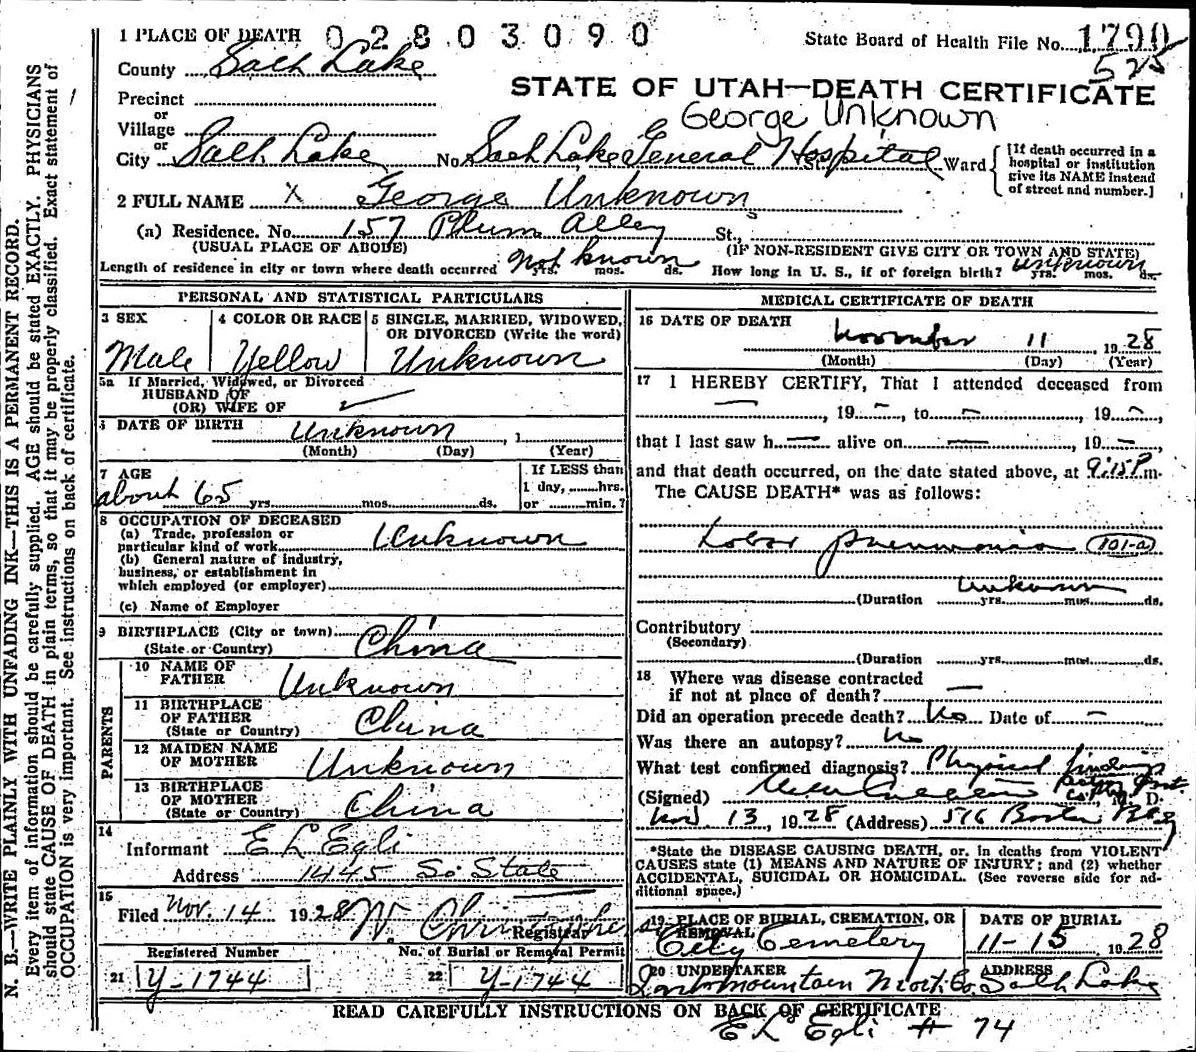 1 PLACE OF DEATH 02803090 State Board of Health File No. 1790
525
County Salt Lake
STATE OF UTAH—DEATH CERTIFICATE
Precinct
George Unknown
or
Village
or
City Salt Lake No. Salt Lake General Hospital St. Ward {[If death occurred in a hospital or institution give its NAME instead of street and number.]
2 FULL NAME X George Unknown
(a) Residence. No. 157 Plum Alley St.,
(USUAL PLACE OF ABODE) (IF NON-RESIDENT GIVE CITY OR TOWN AND STATE)
Length of residence in city or town where death occurred Not known yrs. mos. ds. How long in U. S., if of foreign birth? Unknown yrs. mos. ds.
PERSONAL AND STATISTICAL PARTICULARS
3 SEX Male
4 COLOR OR RACE Yellow
5 SINGLE, MARRIED, WIDOWED, OR DIVORCED (Write the word) Unknown
5a If Married, Widowed, or Divorced
HUSBAND OF
(OR) WIFE OF
6 DATE OF BIRTH Unknown, 1
(Month) (Day) (Year)
7 AGE
about 65 yrs. mos. ds.
If LESS than
1 day, hrs.
or min.?
8 OCCUPATION OF DECEASED
(a) Trade, profession or
particular kind of work Unknown
(b) General nature of industry,
business, or establishment in
which employed (or employer)
(c) Name of Employer
9 BIRTHPLACE (City or town) China
(State or Country)
PARENTS
10 NAME OF
FATHER Unknown
11 BIRTHPLACE
OF FATHER China
(State or Country)
12 MAIDEN NAME
OF MOTHER Unknown
13 BIRTHPLACE
OF MOTHER China
(State or Country)
14
Informant E L Egli
Address 1445 So State
15
Filed Nov. 14 1928 W. Christophers
Registrar
Registered Number
21 Y-1744
No. of Burial or Removal Permit
22 Y-1744
MEDICAL CERTIFICATE OF DEATH
16 DATE OF DEATH
November 11 1928
(Month) (Day) (Year)
17 I HEREBY CERTIFY, That I attended deceased from
—, 19 —, to —, 19 —,
that I last saw h — alive on —, 19 —
and that death occurred, on the date stated above, at 9:15 P m.
The CAUSE DEATH* was as follows:
Lobar pneumonia 101-a
Unknown
(Duration yrs. mos. ds.
Contributory
(Secondary)
(Duration yrs. mos. ds.
18 Where was disease contracted
if not at place of death? —
Did an operation precede death? No Date of —
Was there an autopsy? No
What test confirmed diagnosis? Physical findings
(Signed) M. D.
Nov. 13, 1928 (Address) 516 Boston Bldg
*State the DISEASE CAUSING DEATH, or, in deaths from VIOLENT
CAUSES state (1) MEANS AND NATURE OF INJURY; and (2) whether
ACCIDENTAL, SUICIDAL OR HOMICIDAL. (See reverse side for ad-
ditional space.)
19 PLACE OF BURIAL, CREMATION, OR
REMOVAL
City Cemetery
DATE OF BURIAL
11-15 1928
20 UNDERTAKER
Intermountain Mort. Co.
ADDRESS
Salt Lake
READ CAREFULLY INSTRUCTIONS ON BACK OF CERTIFICATE
E L Egli # 74
N. B.—WRITE PLAINLY WITH UNFADING INK—THIS IS A PERMANENT RECORD.
Every item of information should be carefully supplied. AGE should be stated EXACTLY. PHYSICIANS
should state CAUSE OF DEATH in plain terms, so that it may be properly classified. Exact statement of
OCCUPATION is very important. See instructions on back of certificate.